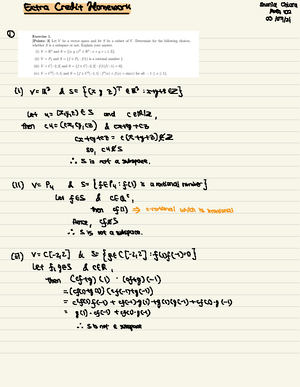 Extra Credit Homework
①
Exercise 1.
(Points: 3) Let V be a vector space and let S be a subset of V. Determine for the following choices, whether S is a subspace or not. Explain your answer.
(i) V = ℝ³ and S = {(x y z)ᵀ ∈ ℝ³ : x + y + z ∈ ℤ}
(ii) V = P₄ and S = {f ∈ P₄ : f(1) is a rational number}
(i) V = ℝ³ & S = {(x y z)ᵀ ∈ ℝ³ : x+y+z ∈ ℤ}
Let u = (x, y, z) ∈ S and c ∈ ℝ\ℤ,
then cu = (cx, cy, cz) & cx+cy+cz
cx+cy+cz = c(x+y+z) ∉ ℤ
so, cu ∉ S
∴ S is not a subspace.
(ii) V = P₄ & S = {f ∈ P₄ : f(1) is a rational number}
Let f ∈ S and c ∈
then cf(1) ⇒ which is irrational
Hence, cf ∉ S
∴ S is not a subspace.
(iii) V = C[-2,2] & S = {g ∈ C[-2,2] : f(1)f(-1)=0}
Let f, g ∈ S & c ∈ ℝ,
then (cf+g)(1) · (cf+g)(-1)
= (cf(1)+g(1)) (cf(-1)+g(-1))
= c²f(1)f(-1) + cf(-1)·g(1) + g(1)g(-1) + cf(1)·g(-1)
= g(1)·cf(-1) + cf(1)·g(-1)
∴ S is not a subspace